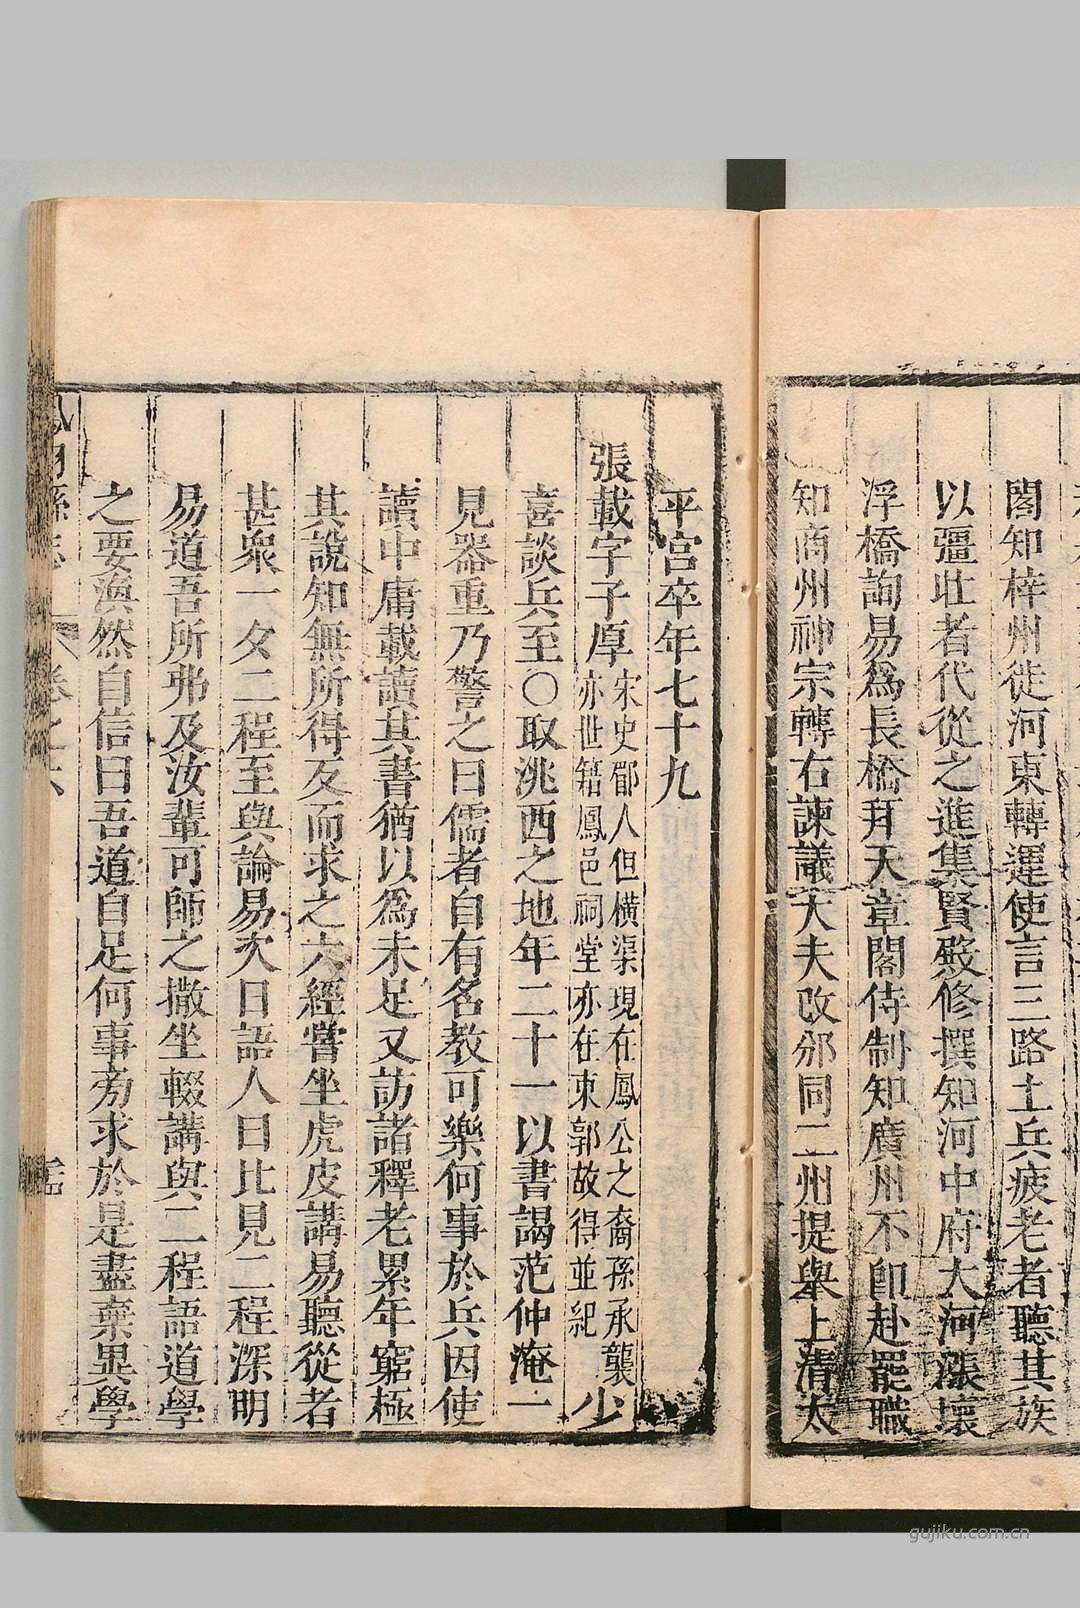 閣知梓州徙河東轉運使言三路土兵疲老者聽其族
以彊壯者代從之進集賢殿修撰知河中府大河漲壞
浮橋詢易爲長橋拜天章閣侍制知廣州不卽赴罷職
知商州神宗轉右諫議大夫改邠同二州提舉上清太
平宮卒年七十九
張載字子厚宋史郿人但橫渠現在鳳公之裔孫承襲
亦世籍鳳邑祠堂亦在東郭故得並紀少
喜談兵至〇取洮西之地年二十一以書謁范仲淹一
見器重乃警之曰儒者自有名教可樂何事於兵因使
讀中庸載讀其書猶以爲未足又訪諸釋老累年窮極
其說知無所得反而求之六經嘗坐虎皮講易聽從者
甚衆一夕二程至與論易次日語人曰比見二程深明
易道吾所弗及汝輩可師之撒坐輟講與二程語道學
之要渙然自信曰吾道自足何事旁求於是盡棄異學
縣志
卷之六
gujiku.com.cn